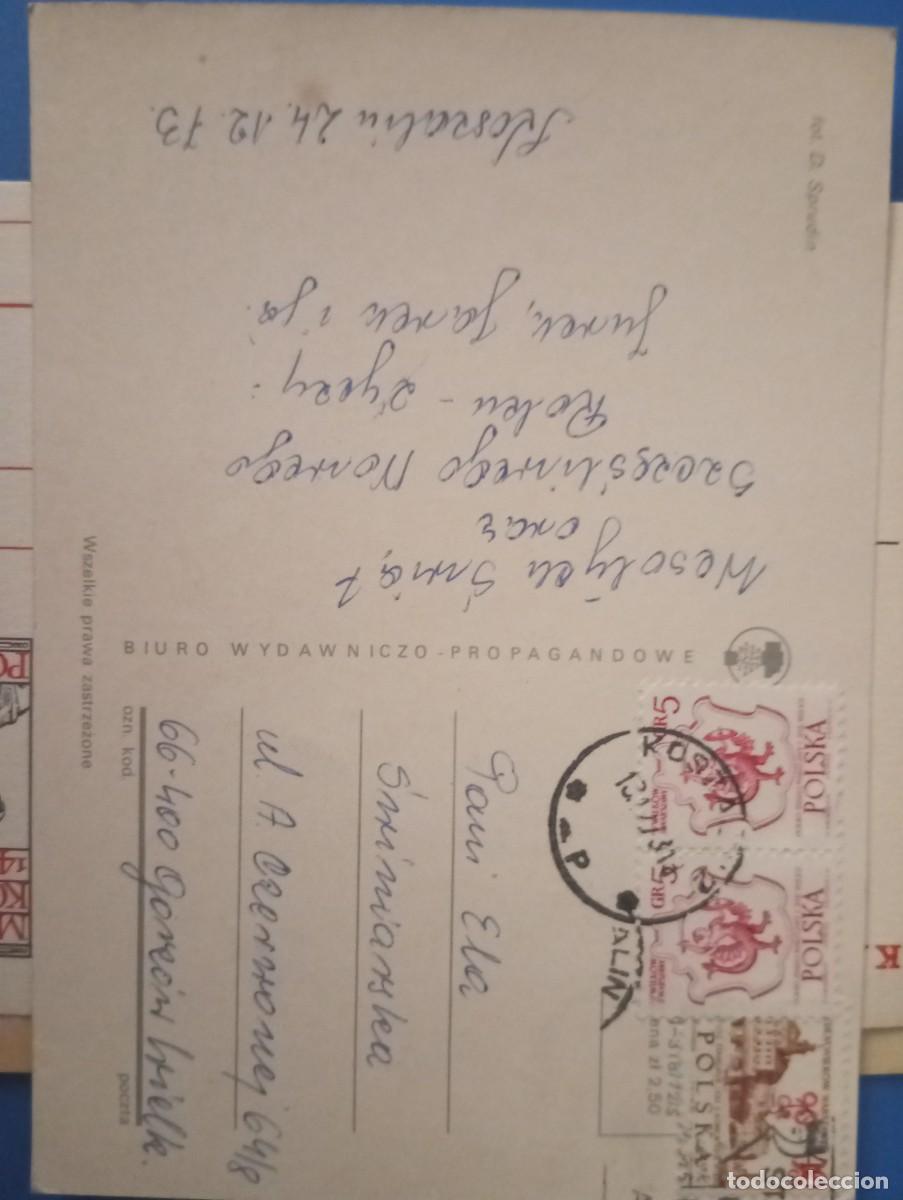 Koszalin 24.12.73.
Wesołych Świąt
oraz
Szczęśliwego Nowego
Roku - życzy:
Jurek, Janek i ja.
BIURO WYDAWNICZO-PROPAGANDOWE
Wszelkie prawa zastrzeżone
Pani Ela
ul. A. Czerwonej 64/8
66-400 Gorzów Wielk.
ozn. kod.
poczta
GR 5
POLSKA
GR 5
POLSKA
POLSKA
ALIN
Cena zł 2,50
PO
14
M
K
todocoleccion.net